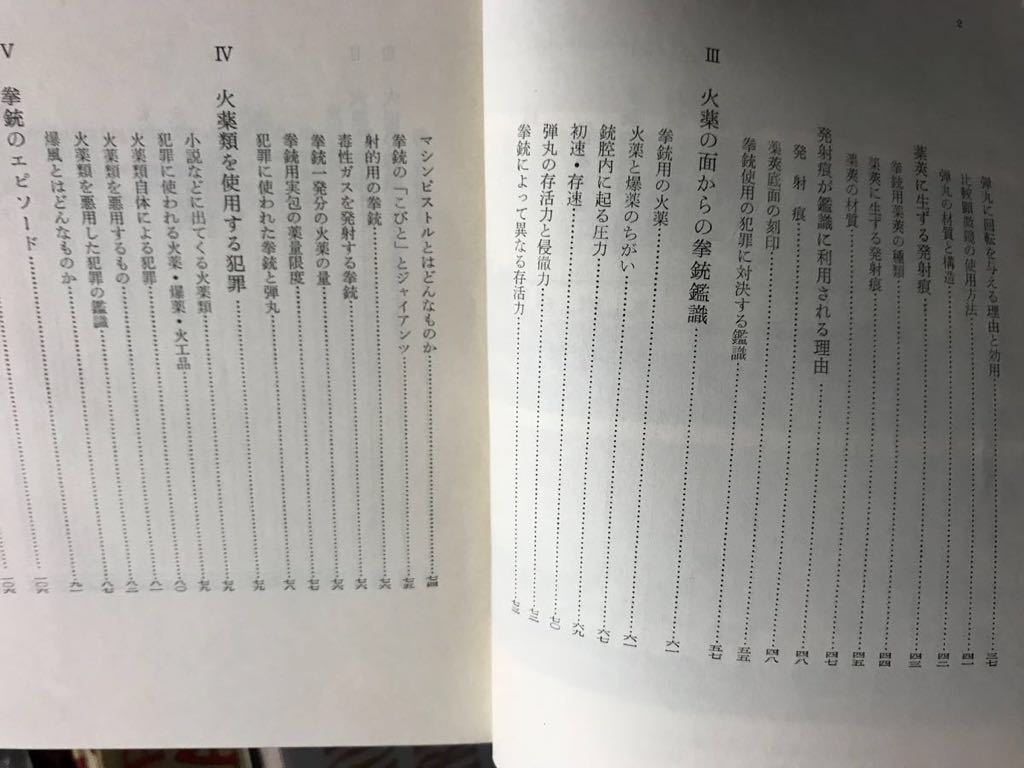 2
弾丸に回転を与える理由と効用……三七
比較顕微鏡の使用方法……四一
弾丸の材質と構造……四二
薬莢に生ずる発射痕……四三
拳銃用薬莢の種類……四四
薬莢に生ずる発射痕……四四
薬莢の材質……四五
発射痕が鑑識に利用される理由……四七
発射痕……四八
薬莢底面の刻印……四八
拳銃使用の犯罪に対決する鑑識……五五
III 火薬の面からの拳銃鑑識……五七
拳銃用の火薬……六一
火薬と爆薬のちがい……六一
銃腔内に起る圧力……六七
初速・存速……六九
弾丸の存活力と侵徹力……七〇
拳銃によって異なる存活力……七二
マシンピストルとはどんなものか……七四
拳銃の「こびと」とジャイアンツ……七五
射的用の拳銃……七六
毒性ガスを発射する拳銃……七六
拳銃一発分の火薬の量……七七
拳銃用実包の薬量限度……七八
犯罪に使われた拳銃と弾丸……七九
IV 火薬類を使用する犯罪……七九
小説などに出てくる火薬類……七九
犯罪に使われる火薬・爆薬・火工品……八〇
火薬類自体による犯罪……八一
火薬類を悪用するもの……八二
火薬類を悪用した犯罪の鑑識……八七
爆風とはどんなものか……九一
V 拳銃のエピソード……一〇六